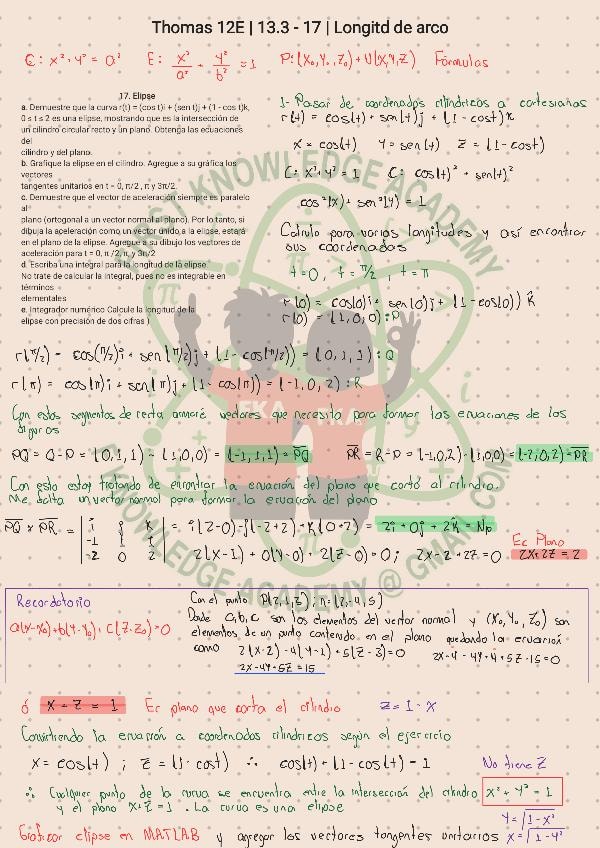 Thomas 12E | 13.3 - 17 | Longitd de arco
C: x² + y² = a²   E: x²/a² + y²/b² = 1   P: (X₀, Y₀, Z₀) + U(X,Y,Z)   Fórmulas
17. Elipse
a. Demuestre que la curva r(t) = (cos t)i + (sen t)j + (1 - cos t)k,
0 ≤ t ≤ 2 es una elipse, mostrando que es la intersección de
un cilindro circular recto y un plano. Obtenga las ecuaciones
del
cilindro y del plano.
b. Grafique la elipse en el cilindro. Agregue a su gráfica los
vectores
tangentes unitarios en t = 0, π/2 , π y 3π/2.
c. Demuestre que el vector de aceleración siempre es paralelo
al
plano (ortogonal a un vector normal al plano). Por lo tanto, si
dibuja la aceleración como un vector unido a la elipse, estará
en el plano de la elipse. Agregue a su dibujo los vectores de
aceleración para t = 0, π /2, π, y 3π/2
d. Escriba una integral para la longitud de la elipse.
No trate de calcular la integral, pues no es integrable en
términos
elementales
e. Integrador numérico Calcule la longitud de la
elipse con precisión de dos cifras )
1- Pasar de coordenadas cilíndricos a cartesianas
r(t) = cos(t) + sen(t)j + (1 - cost)k
X = cos(t)   Y = sen(t)   Z = (1 - cost)
C: x² + y² = 1   C: cos(t)² + sen(t)²
cos²(x) + sen²(y) = 1
Calculo para varios longitudes y así encontrar
sus coordenadas
t = 0 , t = π/2 , t = π
r(0) = cos(0)i + sen(0)j + (1 - cos(0)) k
r(0) = (1, 0, 0) : P
r(π/2) = cos(π/2)i + sen(π/2)j + (1 - cos(π/2)) = (0, 1, 1) : Q
r(π) = cos(π)i + sen(π)j + (1 - cos(π)) = (-1, 0, 2) : R
Con estos segmentos de recta armaré vectores que necesito para formar las ecuaciones de las
figuras
PQ = Q - P = (0,1,1) - (1,0,0) = (-1,1,1) = PQ   PR = R - P = (-1,0,2) - (1,0,0) = (-2,0,2) = PR
Con esto estoy tratando de encontrar la ecuación del plano que cortó al cilindro.
Me falta un vector normal para formar la ecuación del plano
PQ × PR = | i j k | = i(2-0) - j(-2+2) + k(0+2) = 2i + 0j + 2k = Np
-1 1 1   Ec Plano
-2 0 2   2(x-1) + 0(y-0) + 2(z-0) = 0 ; 2x - 2 + 2z = 0   2x + 2z = 2
Recordatorio   Con el punto P(2,1,3) ; n = (2,-4,5)
a(x-x₀) + b(y-y₀) + c(z-z₀) = 0   Donde a,b,c son los elementos del vector normal y (x₀, y₀, z₀) son
elementos de un punto contenido en el plano quedando la ecuación
como 2(x-2) - 4(y-1) + 5(z-3) = 0   2x - 4 - 4y + 4 + 5z - 15 = 0
2x - 4y + 5z = 15
ó x + z = 1   Ec plano que corta el cilindro   z = 1 - x
Convirtiendo la ecuación a coordenadas cilíndricas según el ejercicio
x = cos(t) ; z = (1 - cost) ∴ cos(t) + (1 - cost) = 1   No tiene Z
∴ Cualquier punto de la curva se encuentra entre la intersección del cilindro x² + y² = 1
y el plano x + z = 1 . La curva es una elipse   y = √1 - x²
Graficar elipse en MATLAB y agregar los vectores tangentes unitarios   x = √1 - y²